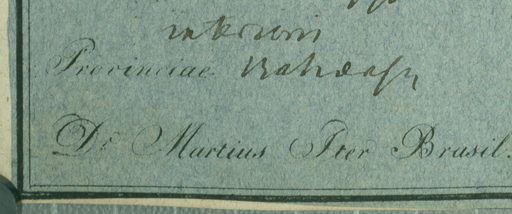 interioris
Provinciae Bahiensis
Dr. Martius Iter Brasil.